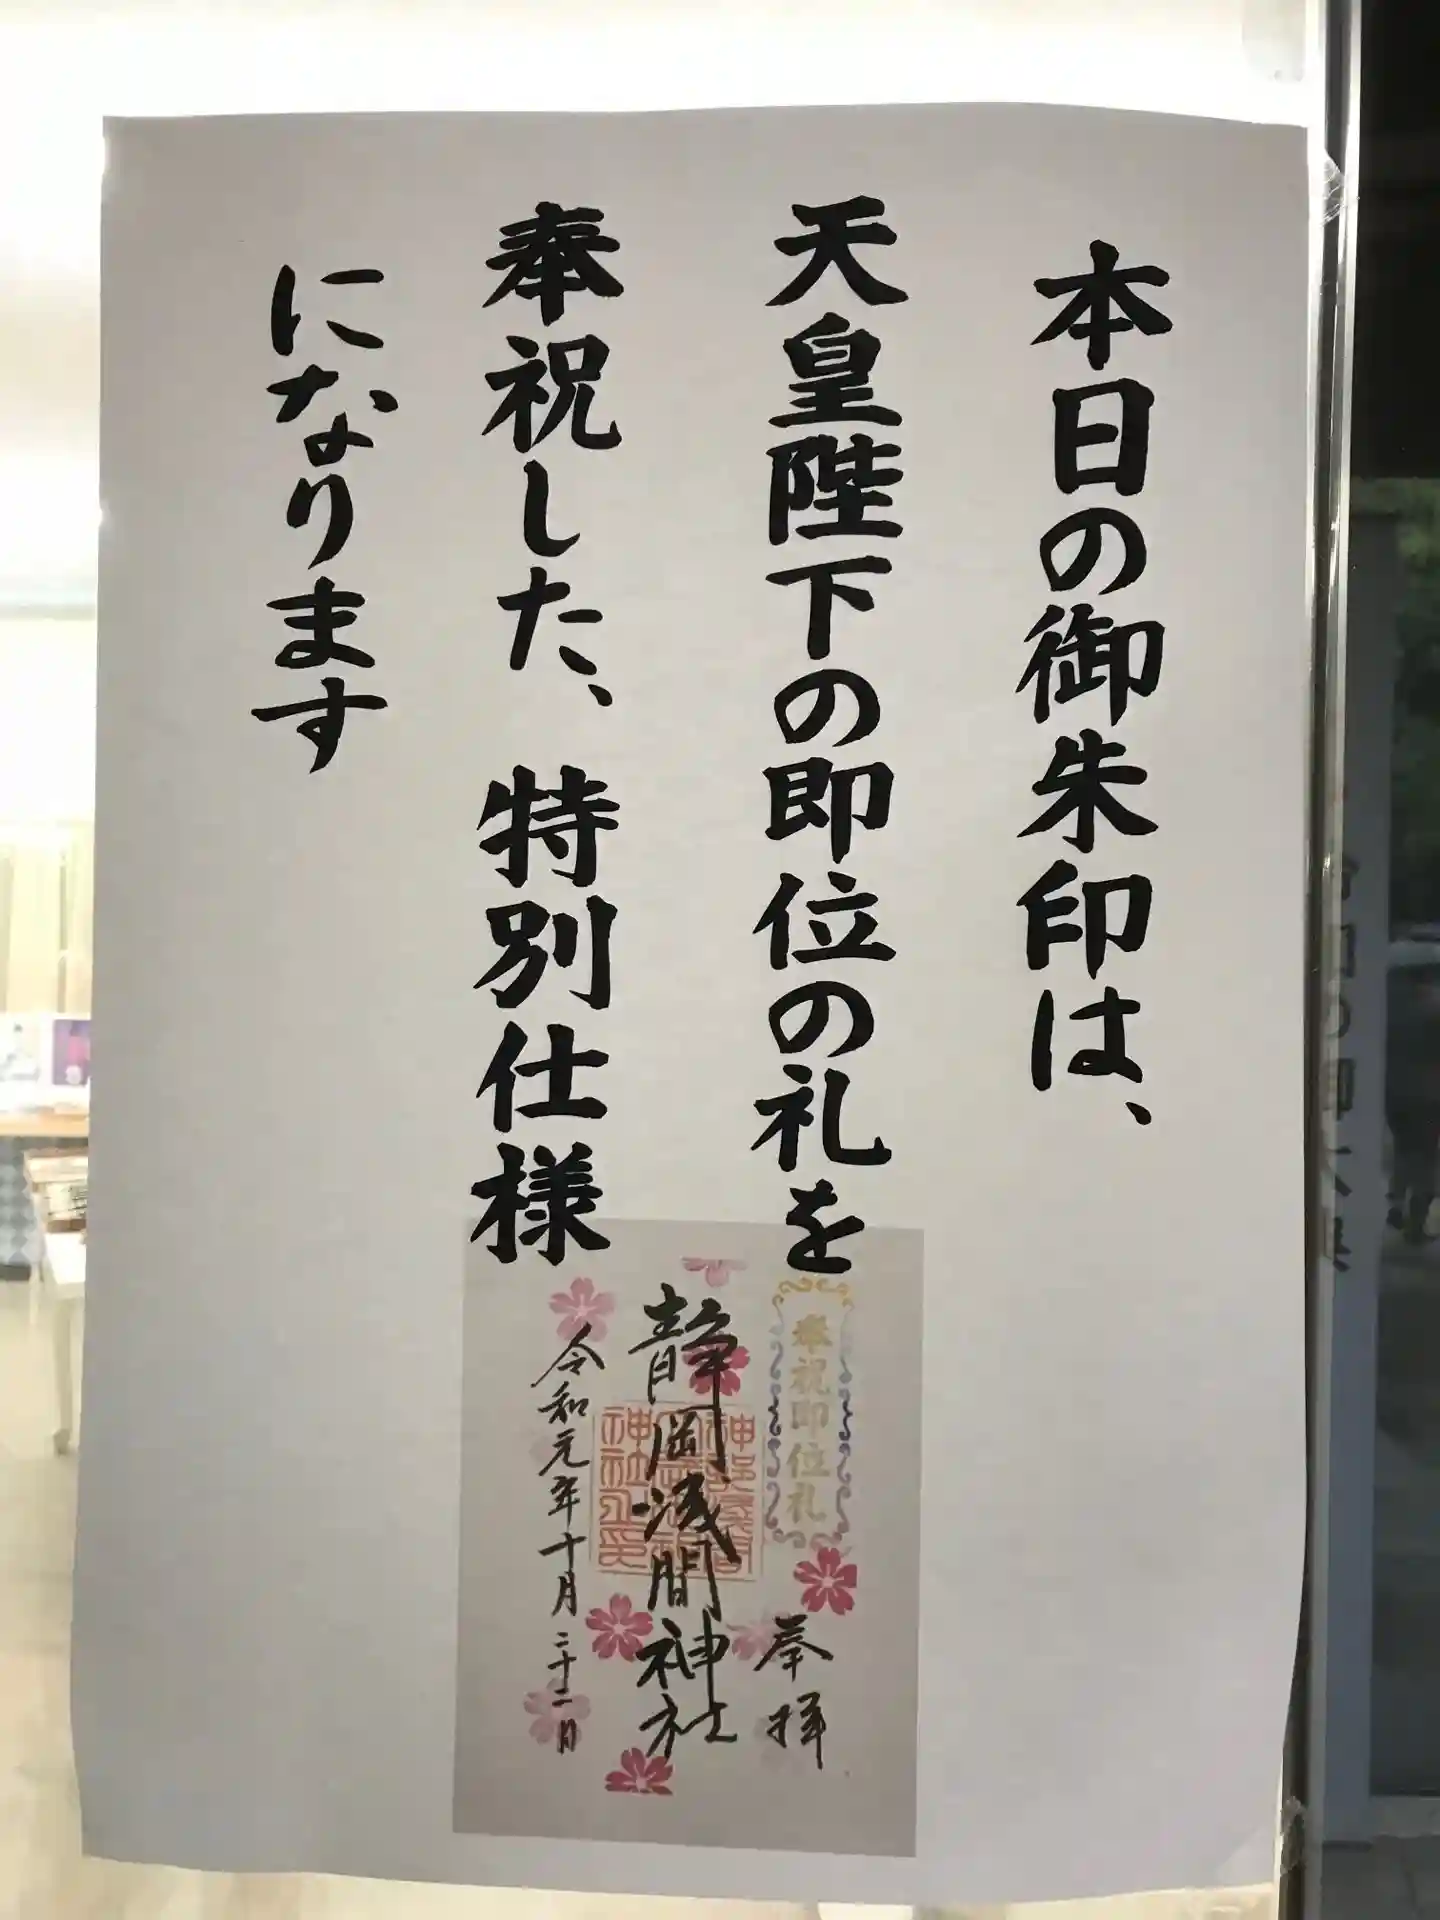 本日の御朱印は、
天皇陛下の即位の礼を
奉祝した、特別仕様
になります
奉祝即位礼
奉拝
静岡浅間神社
令和元年十月二十二日